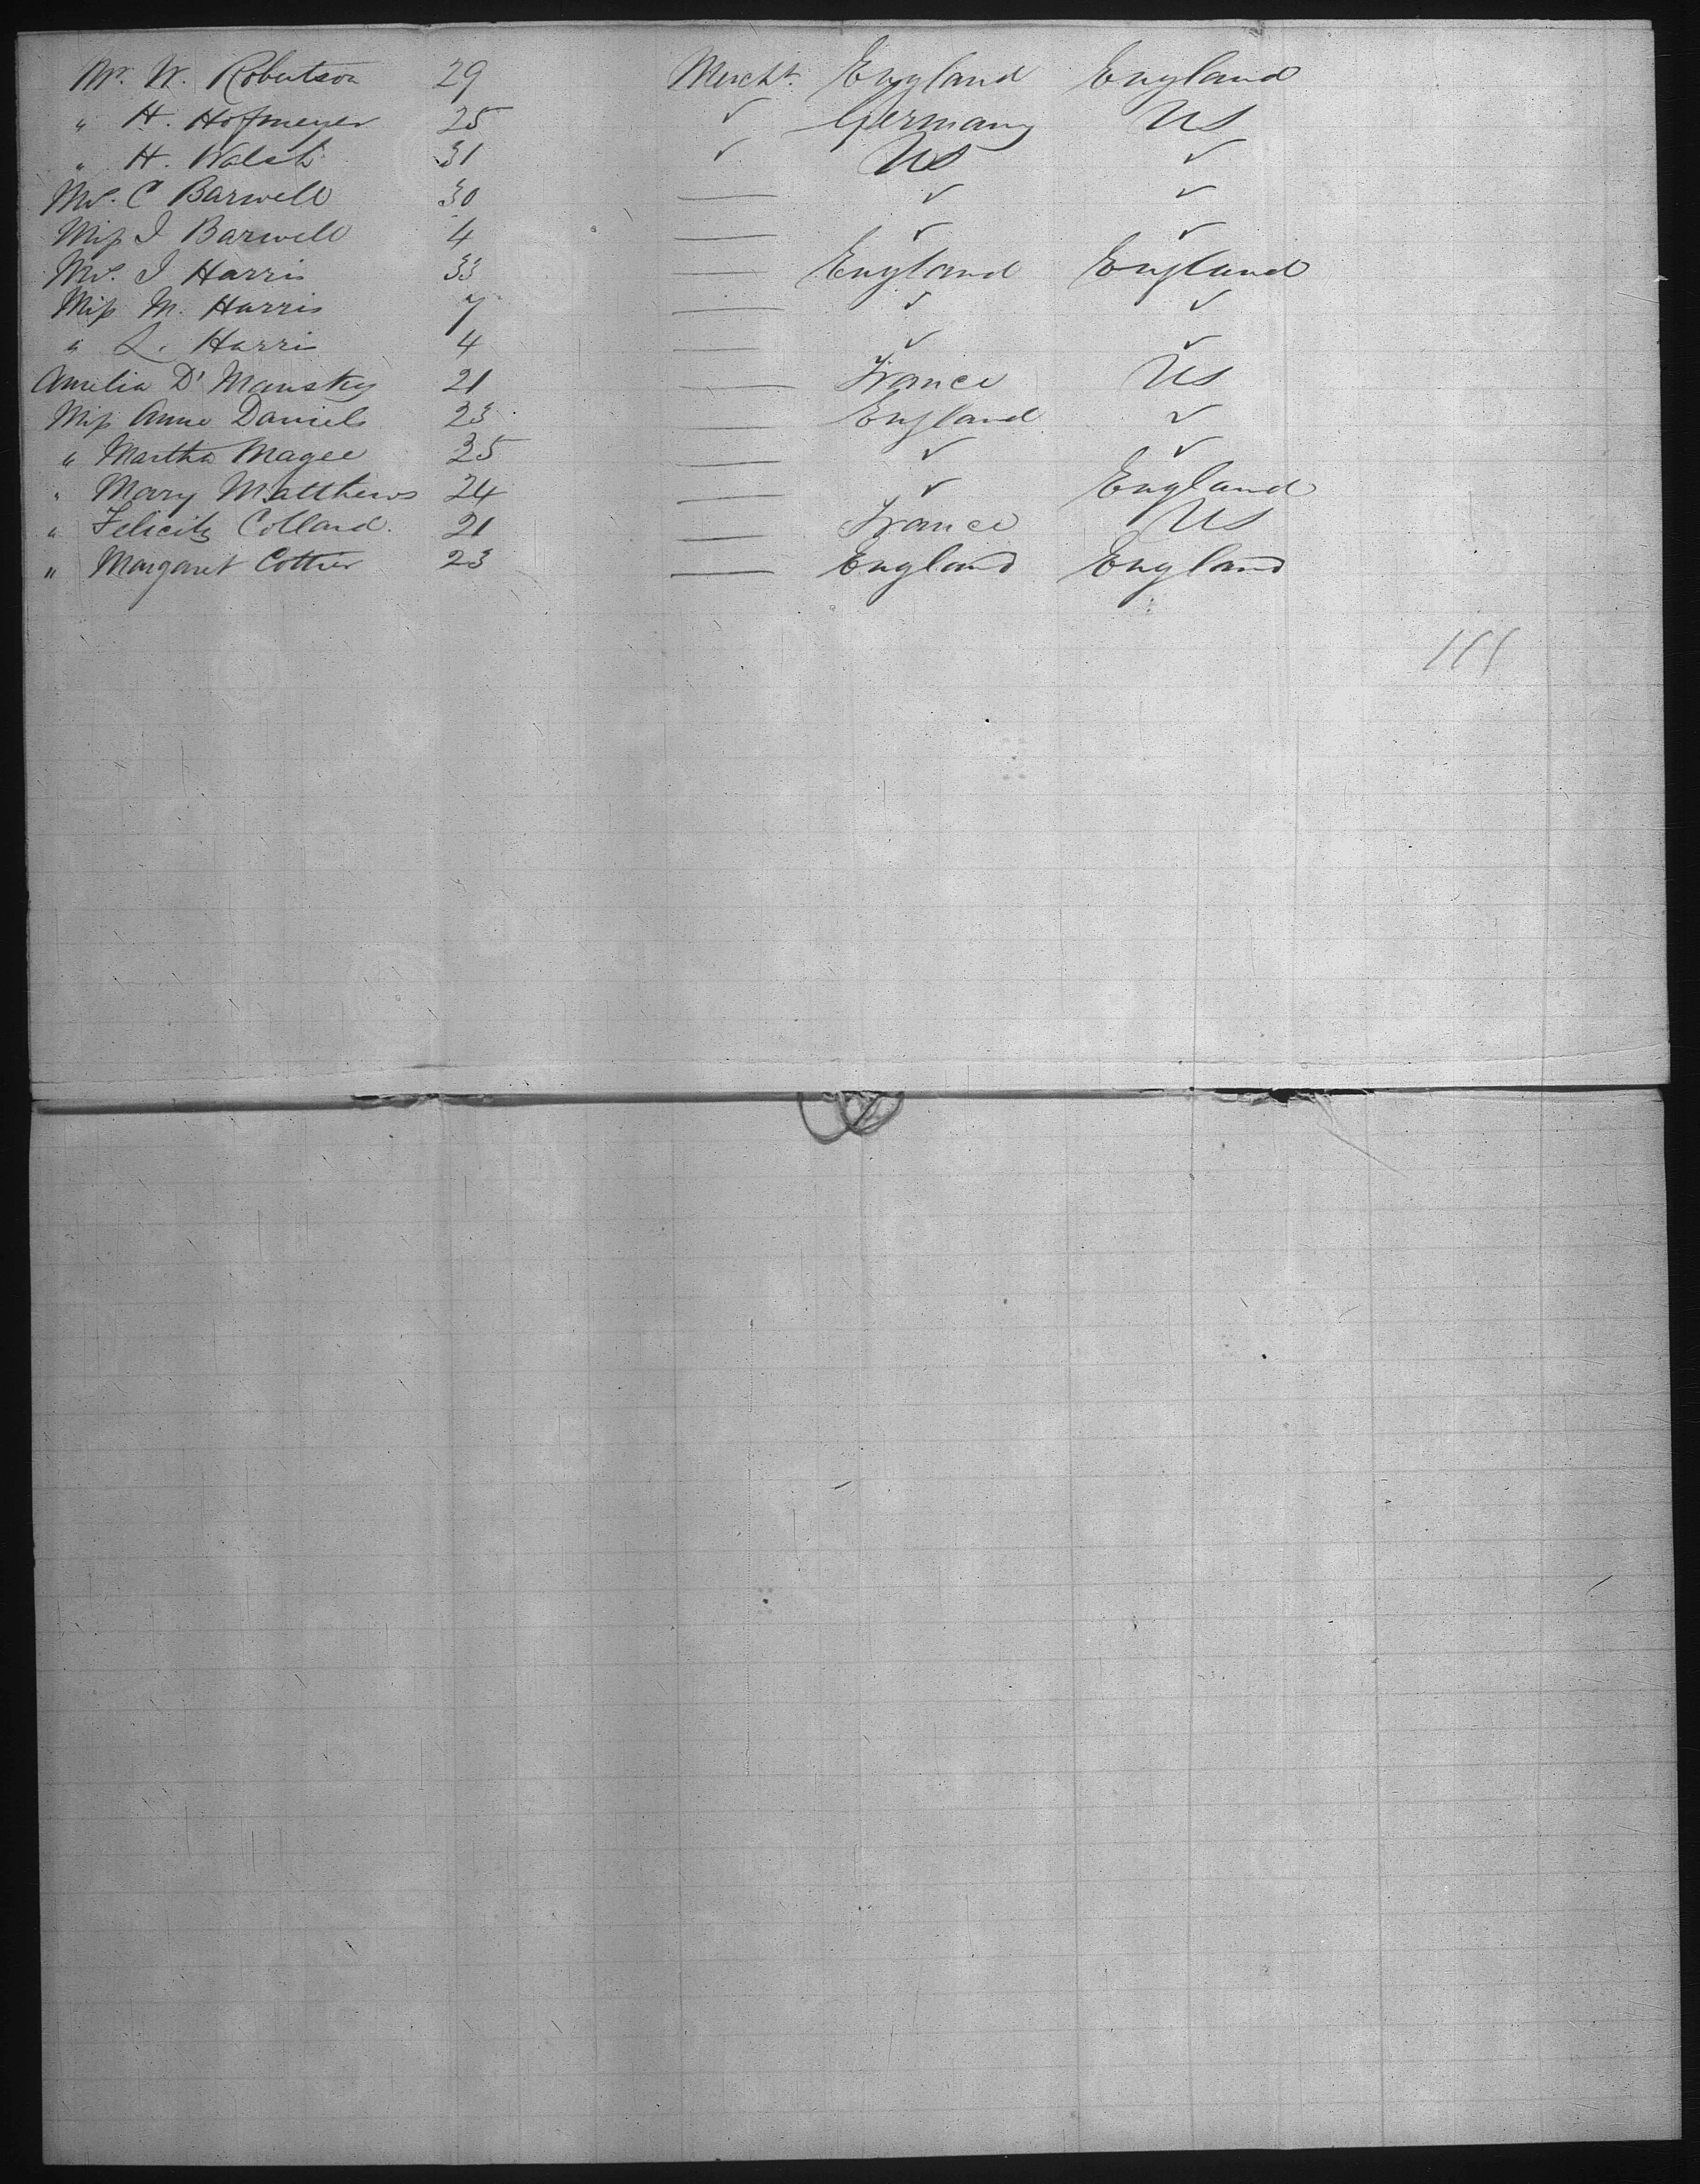 Mr. W. Robertson 29 Mercht. England England
" H. Hofmeyer 25 ✓ Germany US
" H. Walsh 31 ✓ US ✓
Mrs. C Barwell 30 — ✓ ✓
Miss I Barwell 4 — ✓ ✓
Mrs. I Harris 33 — England England
Miss M. Harris 7 — ✓ ✓
" L. Harris 4 — ✓ ✓
Amelia D' Mansky 21 — France US
Miss Anne Daniels 23 — England ✓
" Martha Magee 25 — ✓ ✓
" Mary Matthews 24 — ✓ England
" Felicity Collard. 21 — France US
" Margaret Cottier 23 — England England